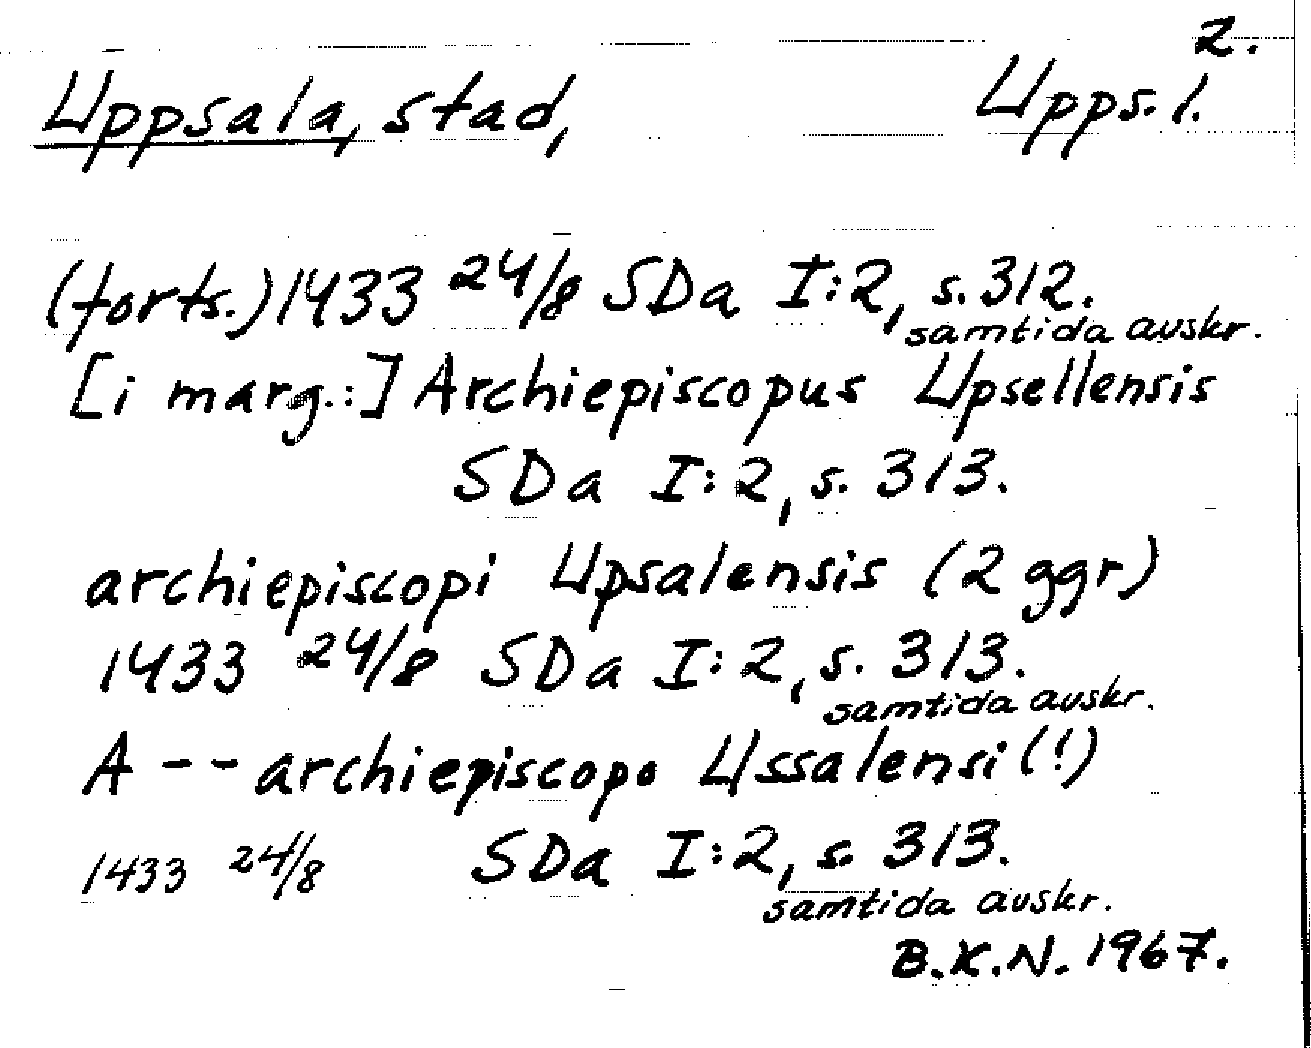 2.
Uppsala, stad, Upps. l.
(forts.) 1433 24/8 SDa I:2, s. 312.
samtida avskr.
[i marg.:] Archiepiscopus Upsellensis
SDa I:2, s. 313.
archiepiscopi Upsalensis (2 ggr)
1433 24/8 SDa I:2, s. 313.
samtida avskr.
A -- archiepiscopo Ussalensi (!)
1433 24/8 SDa I:2, s. 313.
samtida avskr.
B.K.N. 1967.